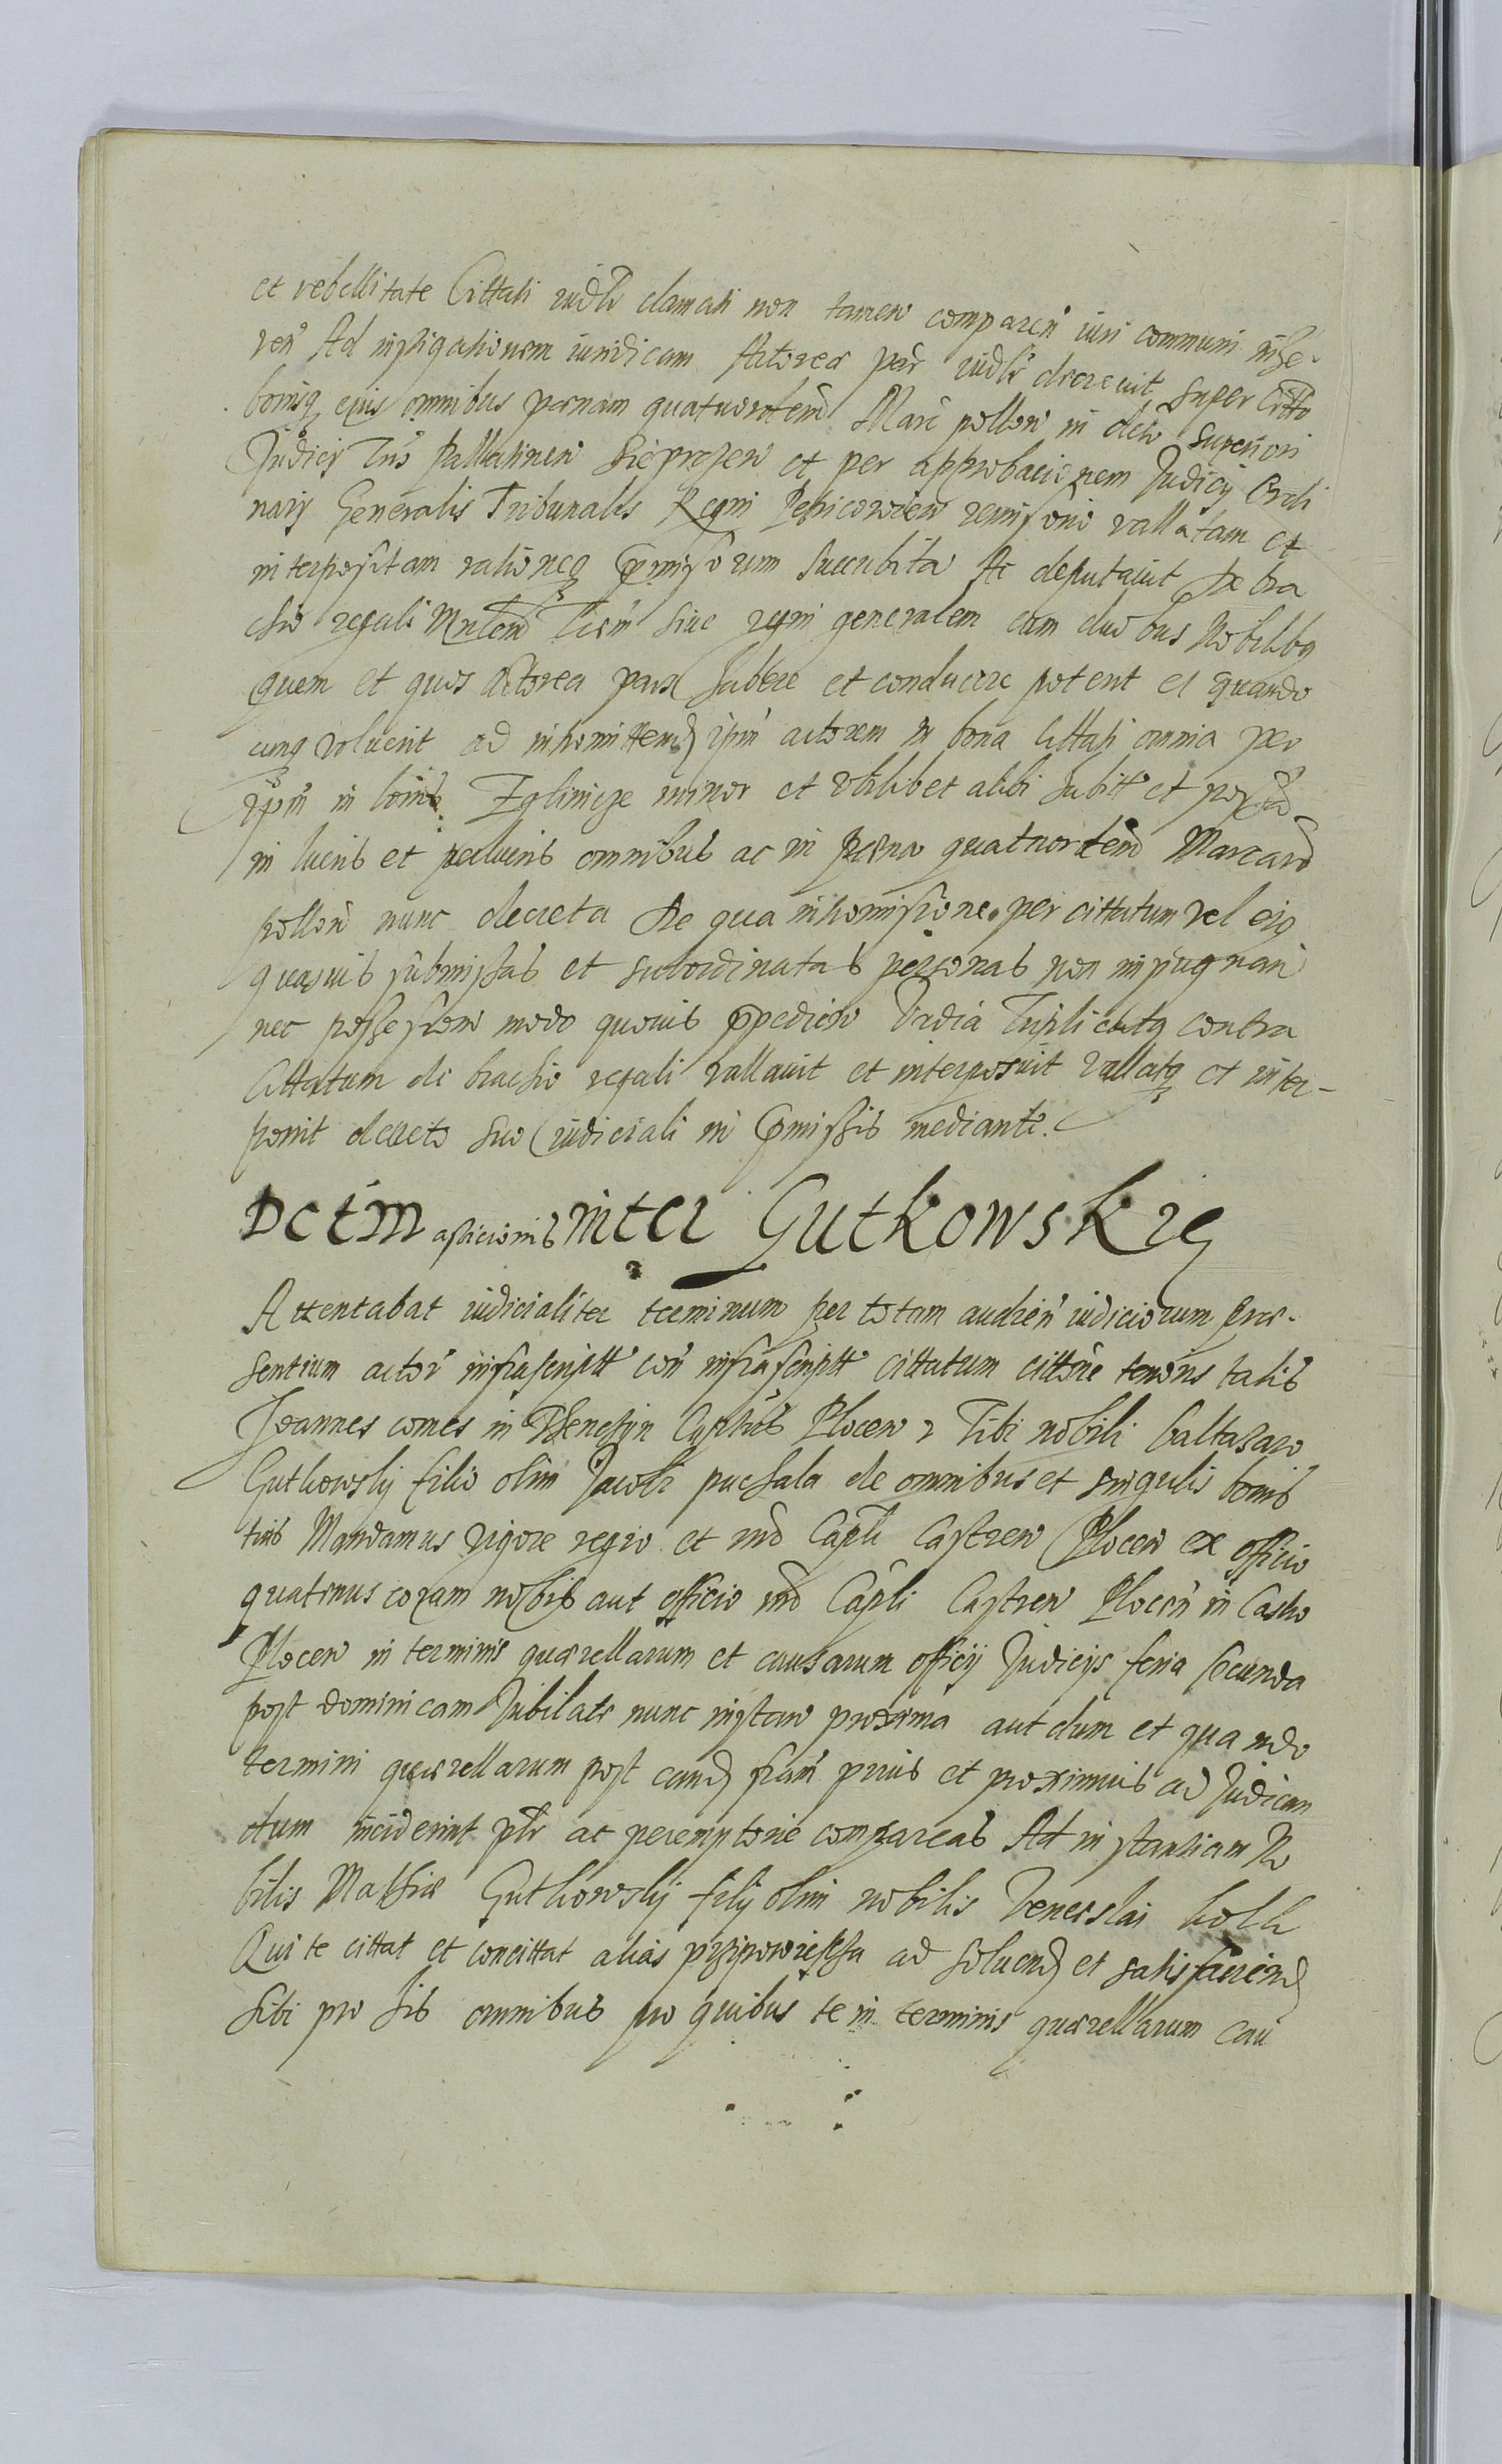 et rebellitate Cittati iudlr clamati non tamen comparen iuri communi inhe-
ren Ad instigationem iuridicam Actorea par iudlr decrevit super Citto
bonisq eius omnibus poenam quatuordem Marc pollon in decto superiori
Judicij Tris Pallatinen hic prosen et per approbacionem Judicij Ordi
narij Generalis Tribunalis Regni Petricovien remissono vallatam et
interpositam rationeq praemissorum succubita Ac deputavit de bra
chio regali Mntem Tcrm sive regni generalem cum duobus Nobilibq
quem et quos Actorea pars habere et conducere poterit et quando
cunq voluerit ad intromittend ipm actorem in bona Cittati omnia per
ipm in bonis Zglinicze minor et vbilibet alibi habit et possa
in lucris et perlucris omnibus ac in poena quatuordem Marcaru
pollon nunc decreta De qua intromissione per cittatum vel eiq
quasvis submissas et subordinatas personas non inpugnari
nec possessiom modo quovis praepedien Vadia Triplicatq contra
Cittatum de brachio regali vallavit et interposuit vallatq et inter-
ponit decreto suo iudiciali in praemissis mediante.
Dctm inter Gutkowskie
Attentabat iudicialiter terminum per totam audien iudiciorum prae-
sentium actor infrascriptt con infrascriptt cittatum cittone tenoris talis
Joannes comes in Thenczyn Capitus Plocen Tibi nobili Baltasaro
Guthowsky filio olim Jacobi puchala de omnibus et singulis bonis
tuis Mandamus vigore regio et nro Capli Castren Plocen ex officio
quatenus coram nobis aut officio nro Capli Castren Plocen in Castro
Plocen in terminis quaerellarum et causarum officij Judicijs feria secunda
post dominicam Jubilate nunc instan proxima aut dum et quando
termini quaerellarum post eand fram prius et proximius ad Judican
dum inciderint plr ac peremptorie compareas Ad instantiam No
bilis Mathiae Guthowsky filij olim nobilis Venceslai
Qui te cittat et concittat alias przipowiescza ad soluend et satisfaciend
sibi pro his omnibus pro quibus te in terminis quaerellarum cau